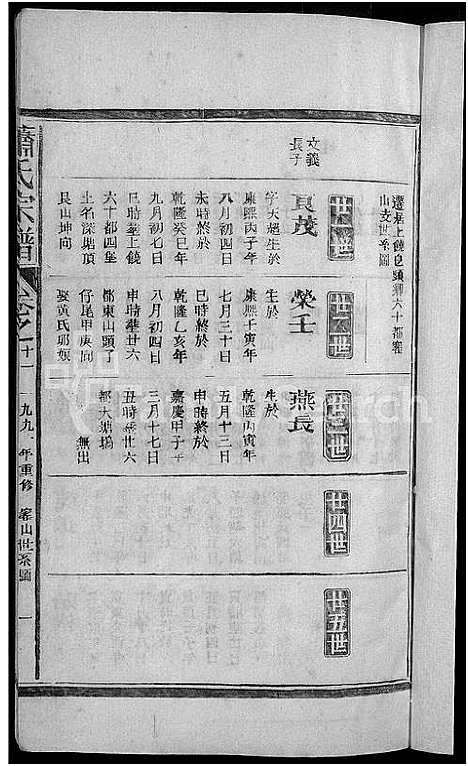 遷基上饒皂頭鄉六十都窰
山支世系圖
廿一世
文義
長子
良茂
字天超生於
康熙丙子年
八月初四日
未時終於
乾隆癸巳年
九月初七日
巳時塟上饒
六十都四堡
土名深塘頂
艮山坤向
廿二世
榮壬
生於
康熙壬寅年
七月三十日
巳時終於
乾隆乙亥年
八月初四日
申時塟廿六
都東山頭了
仔尾甲庚向
娶黃氏邱娘
廿三世
燕長
生於
乾隆丙寅年
五月十三日
申時終於
嘉慶甲子年
三月十七日
丑時塟廿六
都大塘塢
無出
廿四世
廿五世
蕭氏宗譜
卷之十一
一九九一年重修
窰山世系圖
一